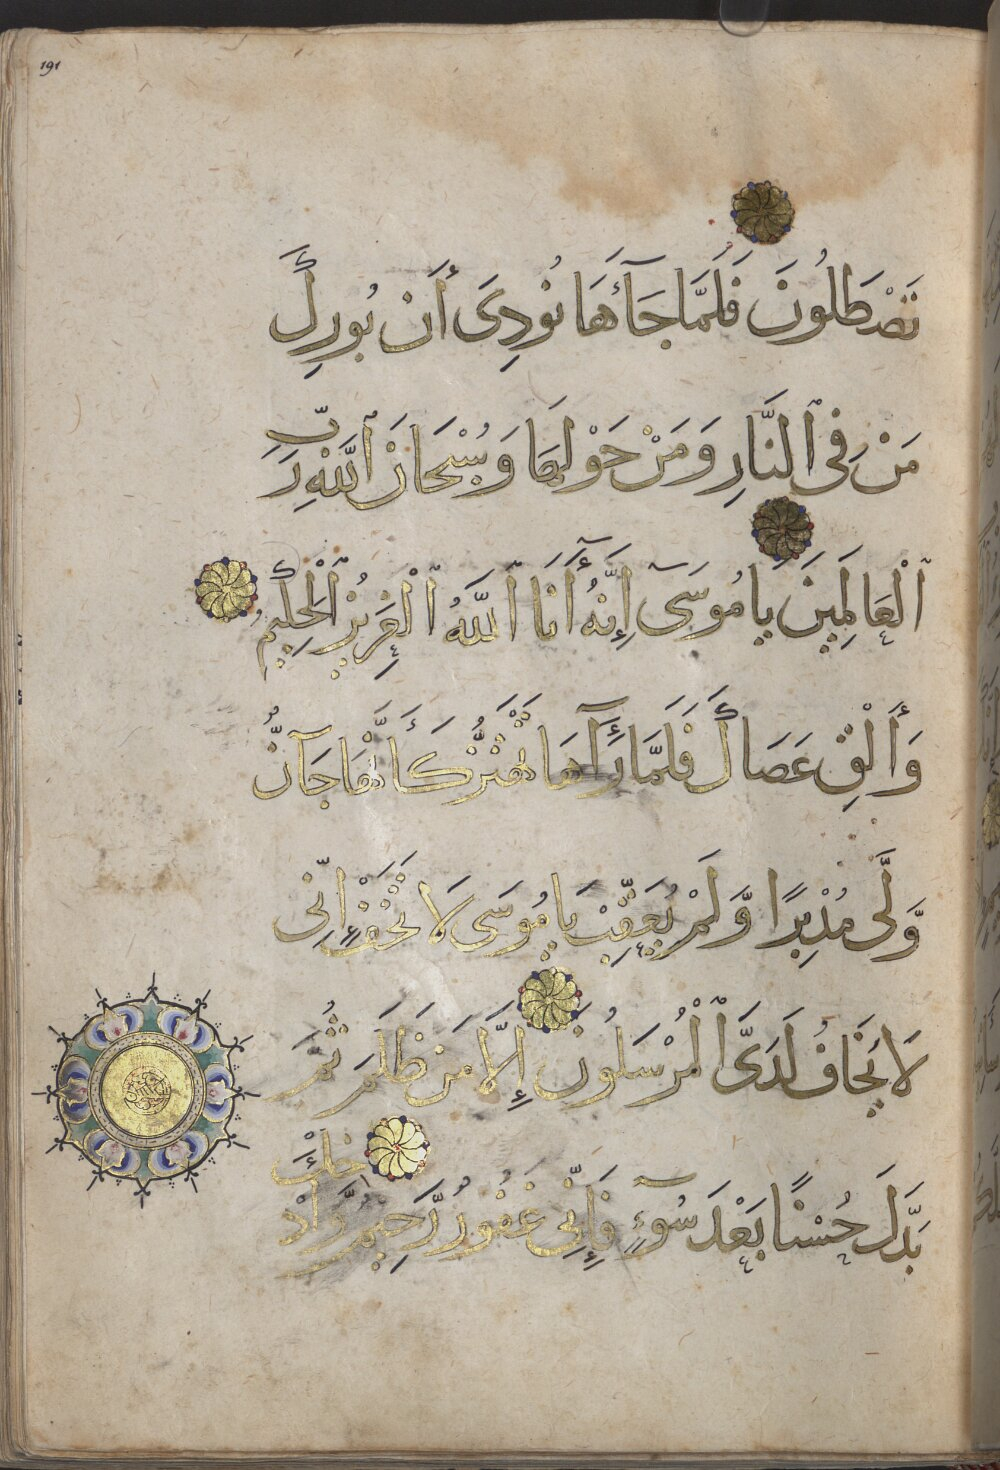 191
تَصْطَلُونَ فَلَمَّا جَآءَهَا نُودِىَ أَن بُورِكَ
مَن فِى ٱلنَّارِ وَمَنْ حَوْلَهَا وَسُبْحَانَ ٱللَّهِ رَبِّ
ٱلْعَالَمِينَ يَا مُوسَىٓ إِنَّهُۥٓ أَنَا ٱللَّهُ ٱلْعَزِيزُ ٱلْحَكِيمُ
وَأَلْقِ عَصَاكَ فَلَمَّا رَءَآهَا تَهْتَزُّ كَأَنَّهَا جَآنٌّ
وَّلَّى مُدْبِرًا وَّلَمْ يُعَقِّبْ يَا مُوسَى لَا تَخَفْ إِنِّى
لَا يَخَافُ لَدَىَّ ٱلْمُرْسَلُونَ إِلَّا مَن ظَلَمَ ثُمَّ
بَدَّلَ حُسْنًا بَعْدَ سُوٓءٍ فَإِنِّى غَفُورٌ رَّحِيمٌ وَأَدْ
خِلْ